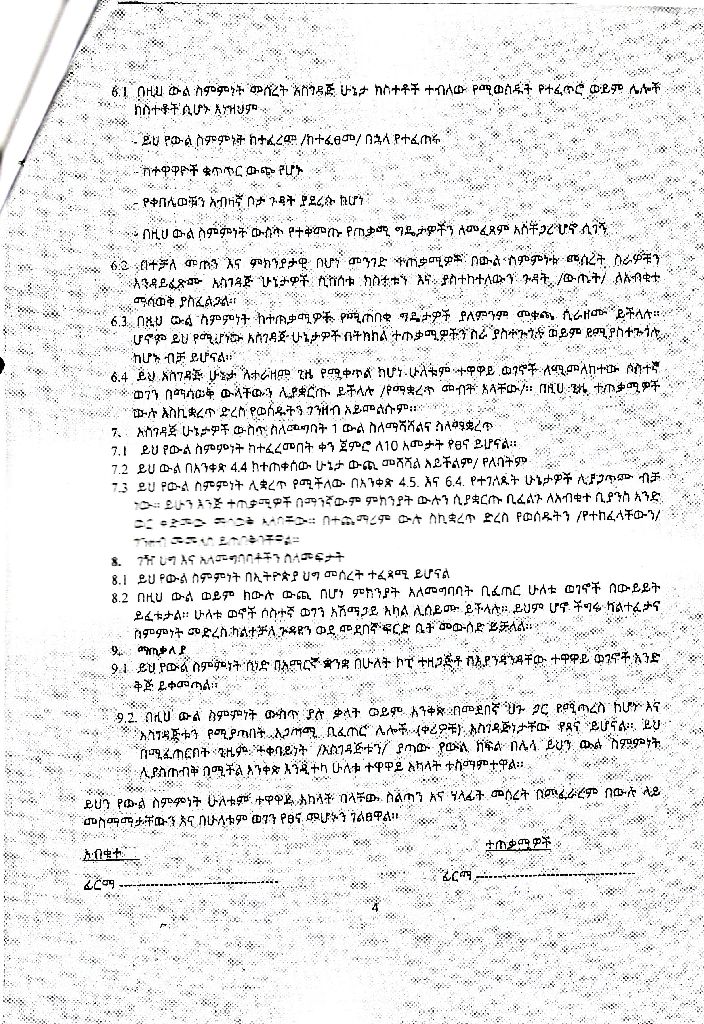 6.1 በዚህ ውል ስምምነት መሰረት አስገዳጅ ሁኔታ ክስተቶች ተብለው የሚወሰዱት የተፈጥሮ ወይም ሌሎች
ክስተቶች ሲሆኑ እነዝህም
- ይህ የውል ስምምነት ከተፈረመ /ከተፈፀመ/ በኋላ የተፈጠሩ
- ከተዋዋዮች ቁጥጥር ውጭ የሆኑ
- የቀበሌወቹን አብዛኛ ቦታ ጉዳት ያደረሱ ከሆነ
- በዚህ ውል ስምምነት ውስጥ የተቀመጡ የጠቃሚ ግዴታዎችን ለመፈጸም አስቸጋሪ ሆኖ ሲገኝ
6.2 በተቻለ መጠን እና ምክንያታዊ በሆነ መንገድ ተጠቃሚዎች በውል ስምምነቱ መሰረት ስራዎቸን
እንዳይፈጽሙ አስገዳጅ ሁኔታዎች ሲከሰቱ ክስተቱን እና ያስተከተለውን ጉዳት /ውጤት/ ለእብቁተ
ማሳወቅ ያስፈልጋል።
6.3 በዚህ ውል ስምምነት ከተጠቃሚዎች የሚጠበቁ ግዴታዎች ያለምንም መቀጮ ሲራዘሙ ይችላሉ።
ሆኖም ይህ የሚሆነው አስገዳጅ ሁኔታዎች በትክክል ተጠቃሚዎችን ስራ ያስተጓጎሉ ወይም የሚያስተጓጎሉ
ከሆኑ ብቻ ይሆናል።
6.4 ይህ አስገዳጅ ሁኔታ ለተራዘም ጊዜ የሚቀጥል ከሆነ ሁለቱም ተዋዋይ ወገኖች ለሚመለከተው ሶስተኛ
ወገን በማሳወቅ ውላቸውን ሊያቋርጡ ይችላሉ /የማቋረጥ መብት አላቸው/። በዚህ ጊዜ ተጠቃሚዎች
ውሉ እስኪቋረጥ ድረስ የወሰዱትን ገንዘብ አይመልሱም።
7. አስገዳጅ ሁኔታዎች ውስጥ ስለመግባት 1 ውል ስለማሻሻልና ስለማቋረጥ
7.1 ይህ የውል ስምምነት ከተፈረመበት ቀን ጀምሮ ለ10 አመታት የፀና ይሆናል።
7.2 ይህ ውል በአንቀጽ 4.4 ከተጠቀሰው ሁኔታ ውጪ መሻሻል አይችልም/ የለበትም
7.3 ይህ የውል ስምምነት ሊቋረጥ የሚችለው በአንቀጽ 4.5. እና 6.4. የተገለጹት ሁኔታዎች ሊያጋጥሙ ብቻ
ነው። ይሁን እንጅ ተጠቃሚዎች በማንኛውም ምክንያት ውሉን ሲያቋርጡ ቢፈልጉ ለእብቁተ ቢያንስ አንድ
ወር ቀድመው ማሳወቅ አለባቸው። በተጨማሪም ውሉ ስኪቋረጥ ድረስ የወሰዱትን /የተከፈላቸውን/
ገንዘብ
8. ገዥ ህግ እና አለመግባባቶችን ስለመፍታት
8.1 ይህ የውል ስምምነት በኢትዮጵያ ህግ መሰረት ተፈጻሚ ይሆናል
8.2 በዚህ ውል ወይም ከውሉ ውጪ በሆነ ምክንያት አለመግባባት ቢፈጠር ሁለቱ ወገኖች በውይይት
ይፈቱታል። ሁለቱ ወኖች ሶስተኛ ወገን አሸማጋይ አካል ሊሰይሙ ይችላሉ። ይህም ሆኖ ችግሩ ካልተፈታና
ስምምነት መድረስ ካልተቻለ ጉዳዩን ወደ መደበኛ ፍርድ ቤት መውሰድ ይቻላል።
9. ማጠቃለያ
9.1 ይህ የውል ስምምነት ሰነድ በአማርኛ ቋንቋ በሁለት ኮፒ ተዘጋጅቶ በእያንዳንዳቸው ተዋዋይ ወገኖች አንድ
ቅጅ ይቀመጣል።
9.2. በዚህ ውል ስምምነት ውስጥ ያሉ ቃላት ወይም አንቀጽ በመደበኛ ህጉ ጋር የሚጣረስ ከሆነ እና
አስገዳጅቱን የሚያጣበት አጋጣሚ ቢፈጠር ሌሎች (ቀሪዎቹ) አስገዳጅነታቸው የጸና ይሆናል። ይህ
በሚፈጠርበት ጊዜም ተቀባይነት /አስገዳጅቱን/ ያጣው የውል ክፍል በሌላ ይህን ውል ስምምነት
ሊያስጠብቅ በሚችል አንቀጽ እንዲተካ ሁለቱ ተዋዋይ አካላት ተስማምተዋል።
ይህን የውል ስምምነት ሁለቱም ተዋዋይ አካላት በላቸው ስልጣን እና ሃላፊት መሰረት በመፈራረም በውሉ ላይ
መስማማታቸውን እና በሁለቱም ወገን የፀና መሆኑን ገልፀዋል።
እብቁተ
ተጠቃሚዎች
ፊርማ
ፊርማ
4